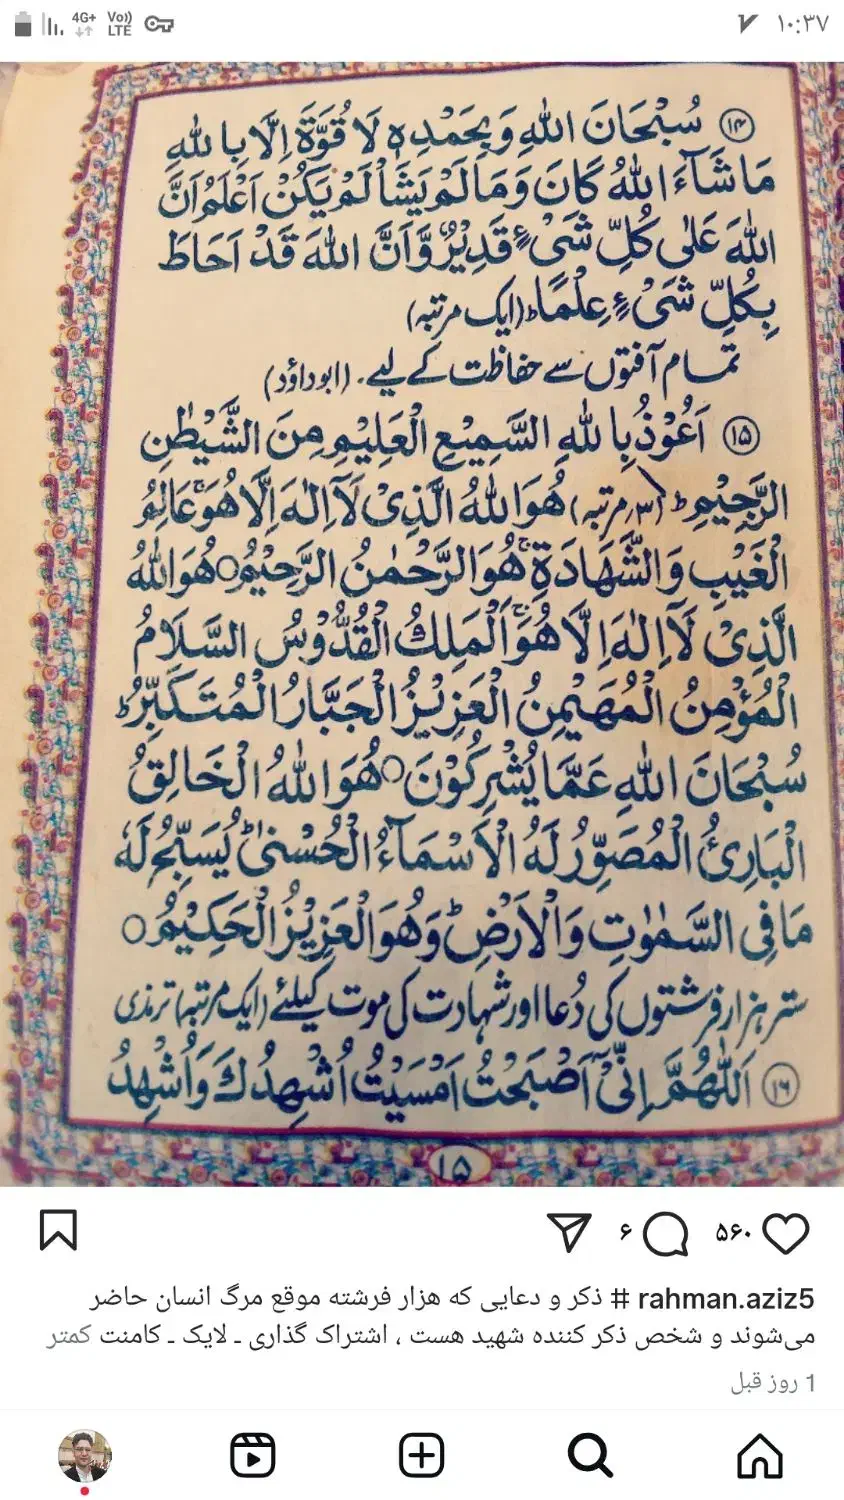 4G+ Vo)) LTE ۱۰:۳۷
۱۴ سُبْحَانَ اللهِ وَبِحَمْدِهٖ لَا قُوَّةَ اِلَّا بِاللهِ
مَاشَآءَ اللهُ كَانَ وَمَا لَمْ يَشَاْ لَمْ يَكُنْ اَعْلَمُ اَنَّ
اللهَ عَلٰى كُلِّ شَیْءٍ قَدِيْرٌ وَّاَنَّ اللهَ قَدْ اَحَاطَ
بِكُلِّ شَیْءٍ عِلْمًا ط (ایک مرتبہ)
تمام آفتوں سے حفاظت کے لیے۔ (ابوداؤد)
۱۵ اَعُوْذُ بِاللهِ السَّمِيْعِ الْعَلِيْمِ مِنَ الشَّيْطٰنِ
الرَّجِيْمِ ط (۳ مرتبہ) هُوَ اللهُ الَّذِیْ لَآ اِلٰهَ اِلَّا هُوَ ۚ عَالِمُ
الْغَيْبِ وَالشَّهَادَةِ ۚ هُوَ الرَّحْمٰنُ الرَّحِيْمُ ○ هُوَ اللهُ
الَّذِیْ لَآ اِلٰهَ اِلَّا هُوَ ۚ اَلْمَلِكُ الْقُدُّوْسُ السَّلَامُ
الْمُؤْمِنُ الْمُهَيْمِنُ الْعَزِيْزُ الْجَبَّارُ الْمُتَكَبِّرُ ط
سُبْحَانَ اللهِ عَمَّا يُشْرِكُوْنَ ○ هُوَ اللهُ الْخَالِقُ
الْبَارِئُ الْمُصَوِّرُ لَهُ الْاَسْمَآءُ الْحُسْنٰى ط يُسَبِّحُ لَهٗ
مَا فِی السَّمٰوٰتِ وَالْاَرْضِ ط وَهُوَ الْعَزِيْزُ الْحَكِيْمُ ○
ستر ہزار فرشتوں کی دُعا اور شہادت کی موت کیلئے (ایک مرتبہ) ترمذی
۱۶ اَللّٰهُمَّ اِنِّیْٓ اَصْبَحْتُ اَمْسَيْتُ اُشْهِدُكَ وَاُشْهِدُ
۱۵
۵۶۰ ۶
rahman.aziz5 # ذکر و دعایی که هزار فرشته موقع مرگ انسان حاضر
می‌شوند و شخص ذکر کننده شهید هست ، اشتراک گذاری ـ لایک ـ کامنت کمتر
1 روز قبل